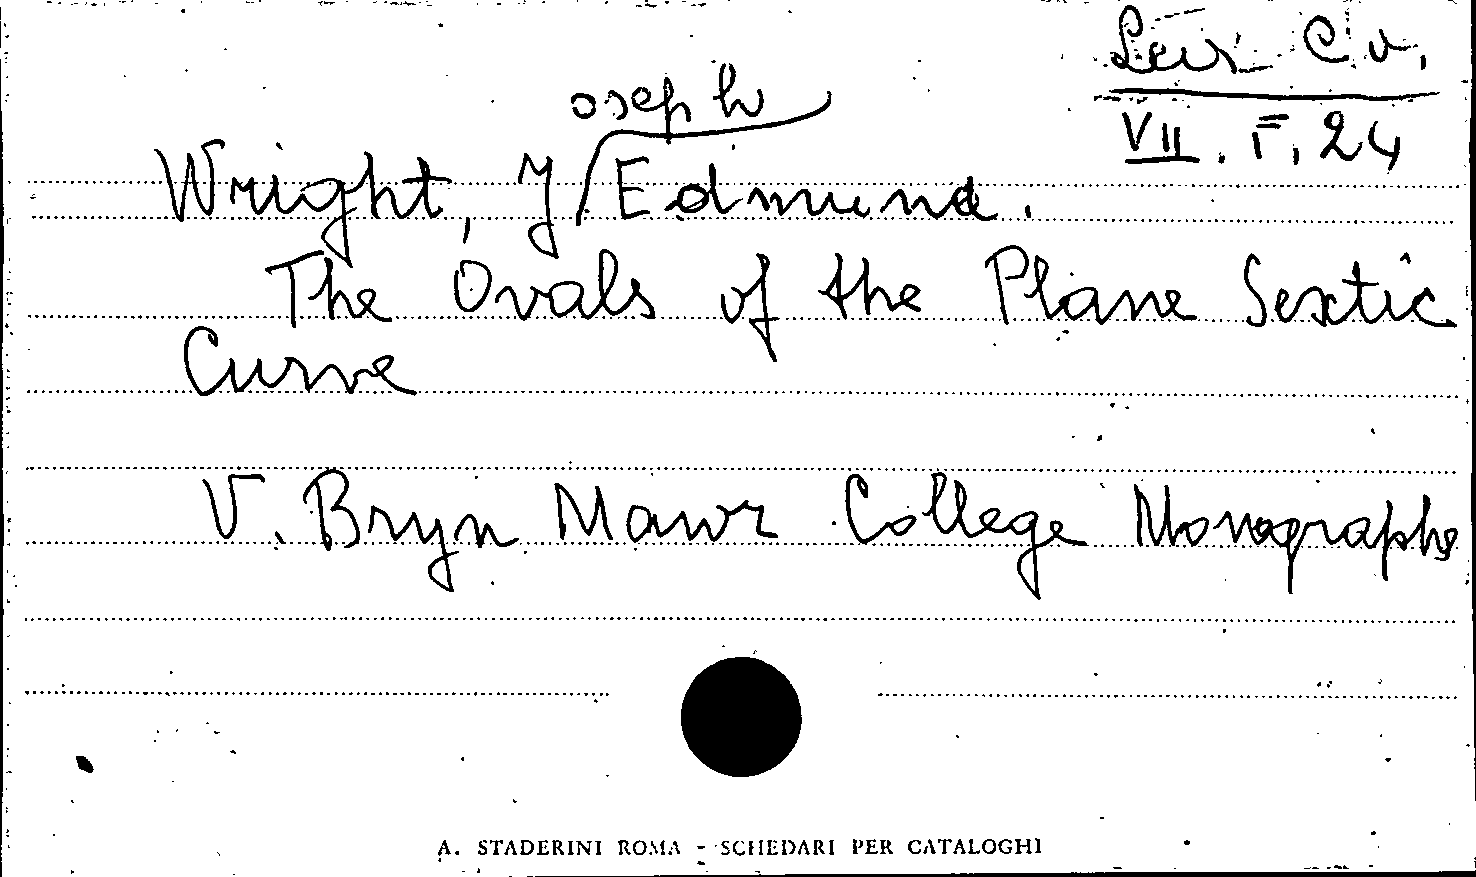 Levi Civ.
VII. F. 24
oseph
Wright, J Edmund.
The Ovals of the Plane Sextic
Curve
V. Bryn Mawr College Monographs
A. STADERINI ROMA - SCHEDARI PER CATALOGHI